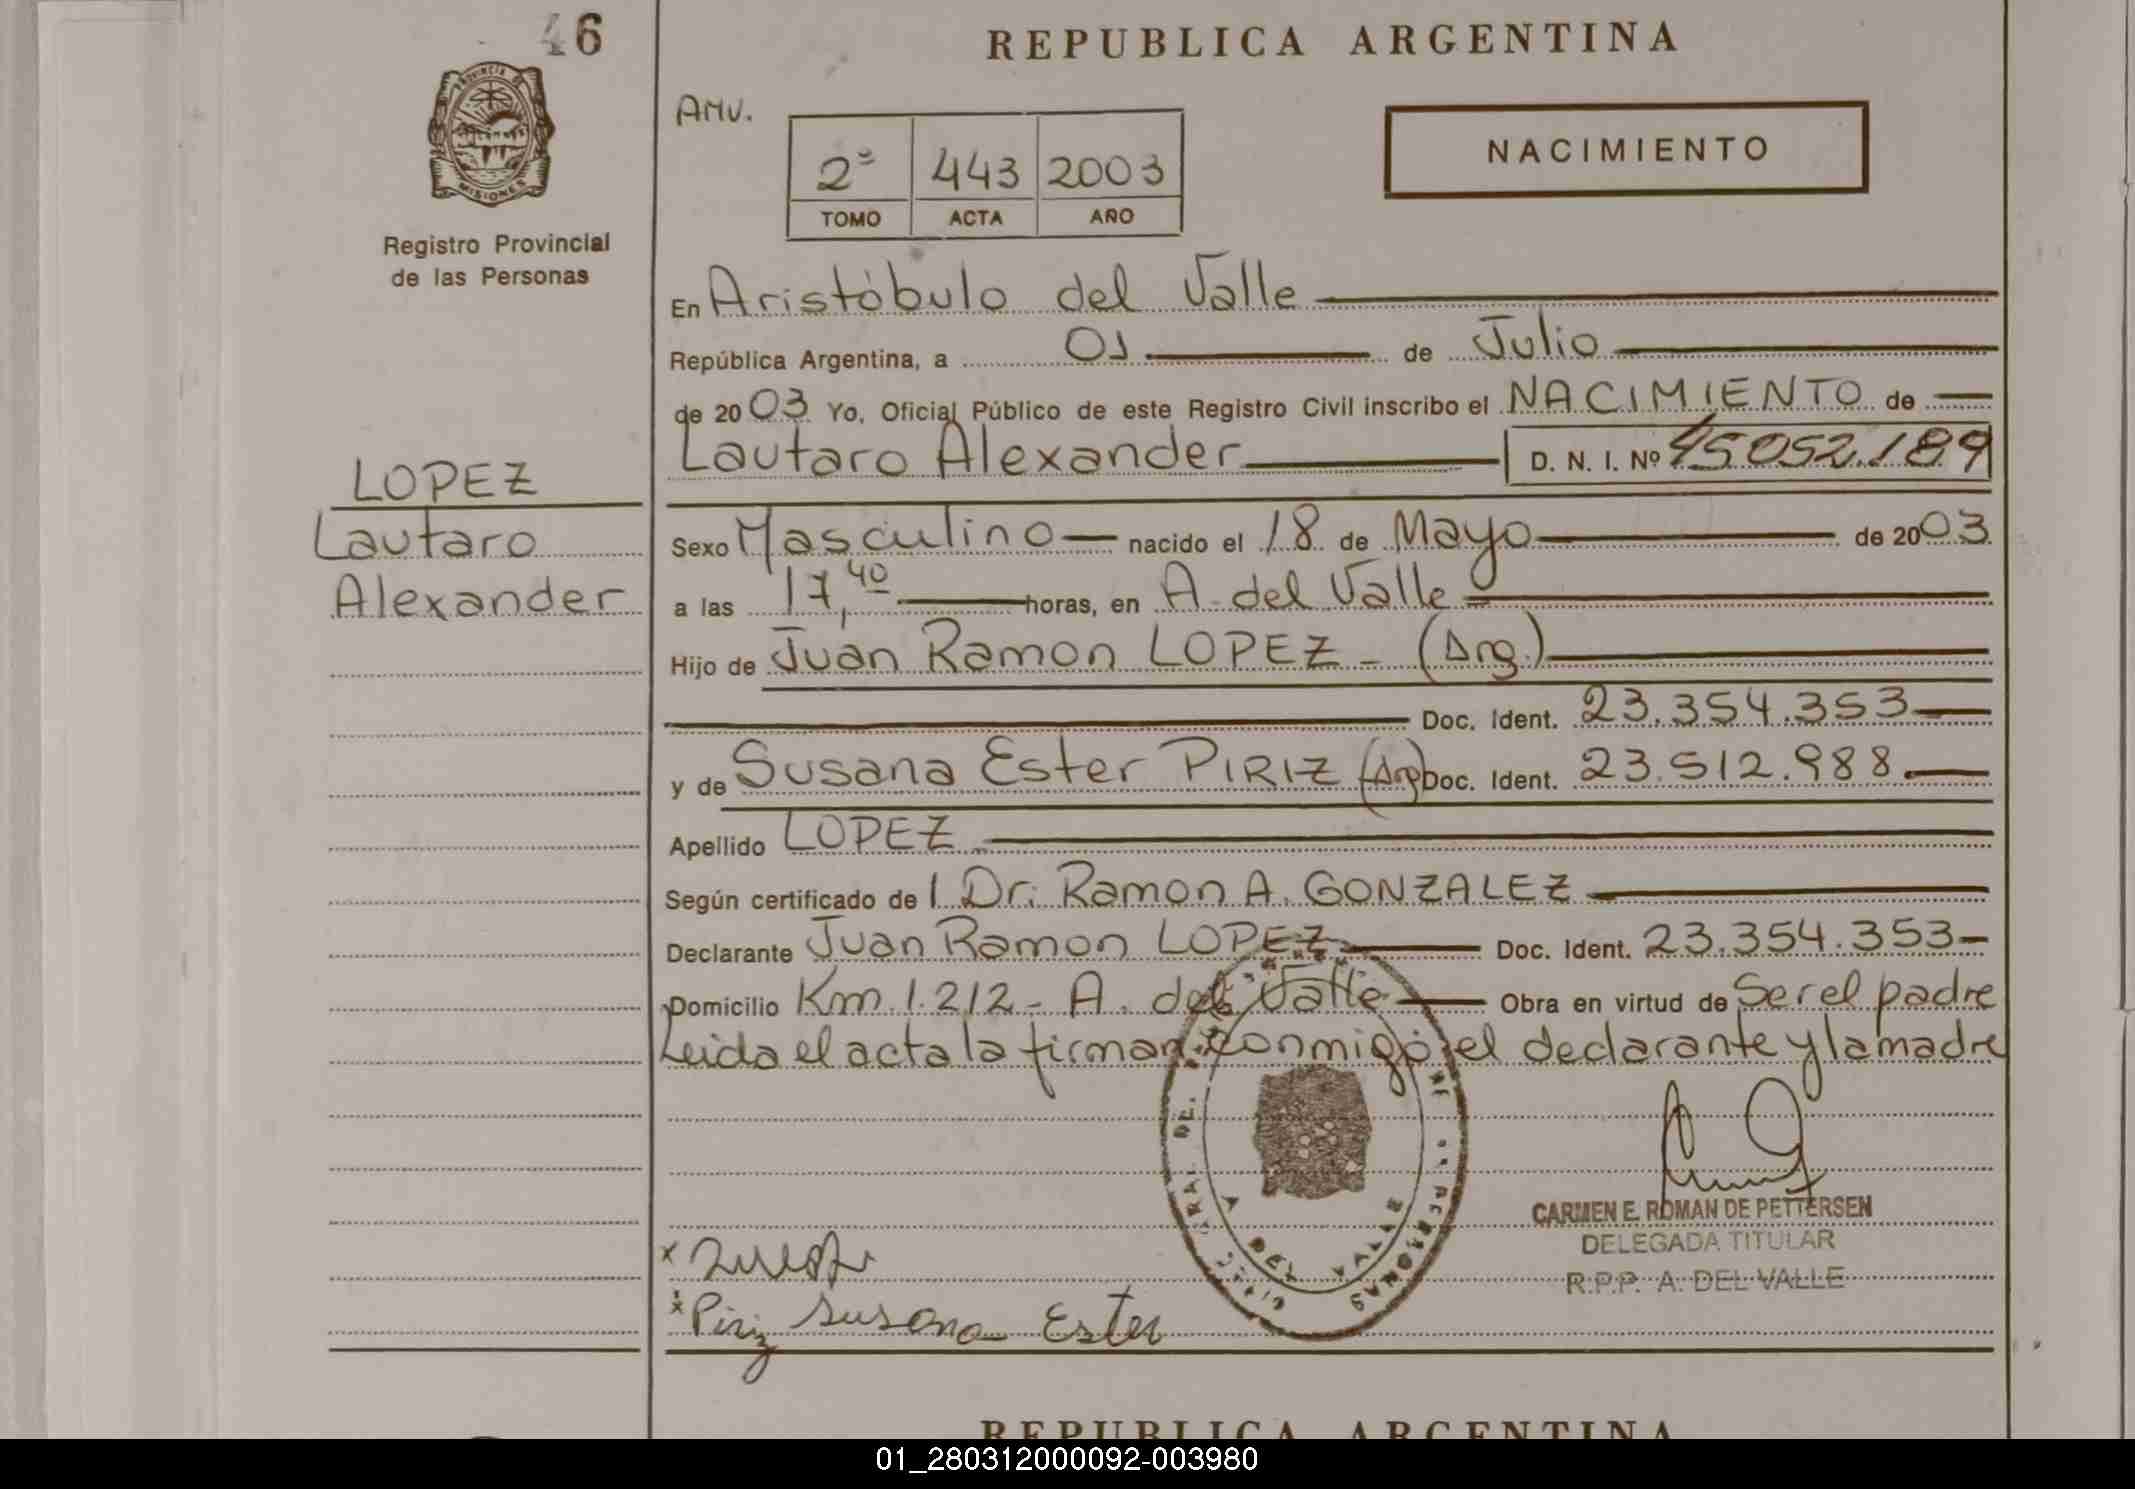 46
REPUBLICA ARGENTINA
PROVINCIA DE
MISIONES
Registro Provincial
de las Personas
AMV.
NACIMIENTO
2º 443 2003
TOMO ACTA AÑO
En Aristóbulo del Valle
República Argentina, a 01 de Julio
de 2003 Yo, Oficial Público de este Registro Civil inscribo el NACIMIENTO de
Lautaro Alexander D. N. I. Nº 45052.189
LOPEZ
Lautaro
Alexander
Sexo Masculino nacido el 18 de Mayo de 2003
a las 17,40 horas, en A. del Valle
Hijo de Juan Ramon LOPEZ - (Arg.)
Doc. Ident. 23.354.353
y de Susana Ester PIRIZ (Arg) Doc. Ident. 23.512.988
Apellido LOPEZ
Según certificado de l Dr: Ramon A. GONZALEZ
Declarante Juan Ramon LOPEZ Doc. Ident. 23.354.353
Domicilio Km 1.212 - A. del Valle Obra en virtud de Ser el padre
Leida el acta la firman conmigo el declarante y la madre
PERSONAS
A. DEL VALLE
CARMEN E. ROMAN DE PETTERSEN
DELEGADA TITULAR
R.P.P. A. DEL VALLE
x
x Piriz Susana Ester
REPUBLICA ARGENTINA
01_280312000092-003980